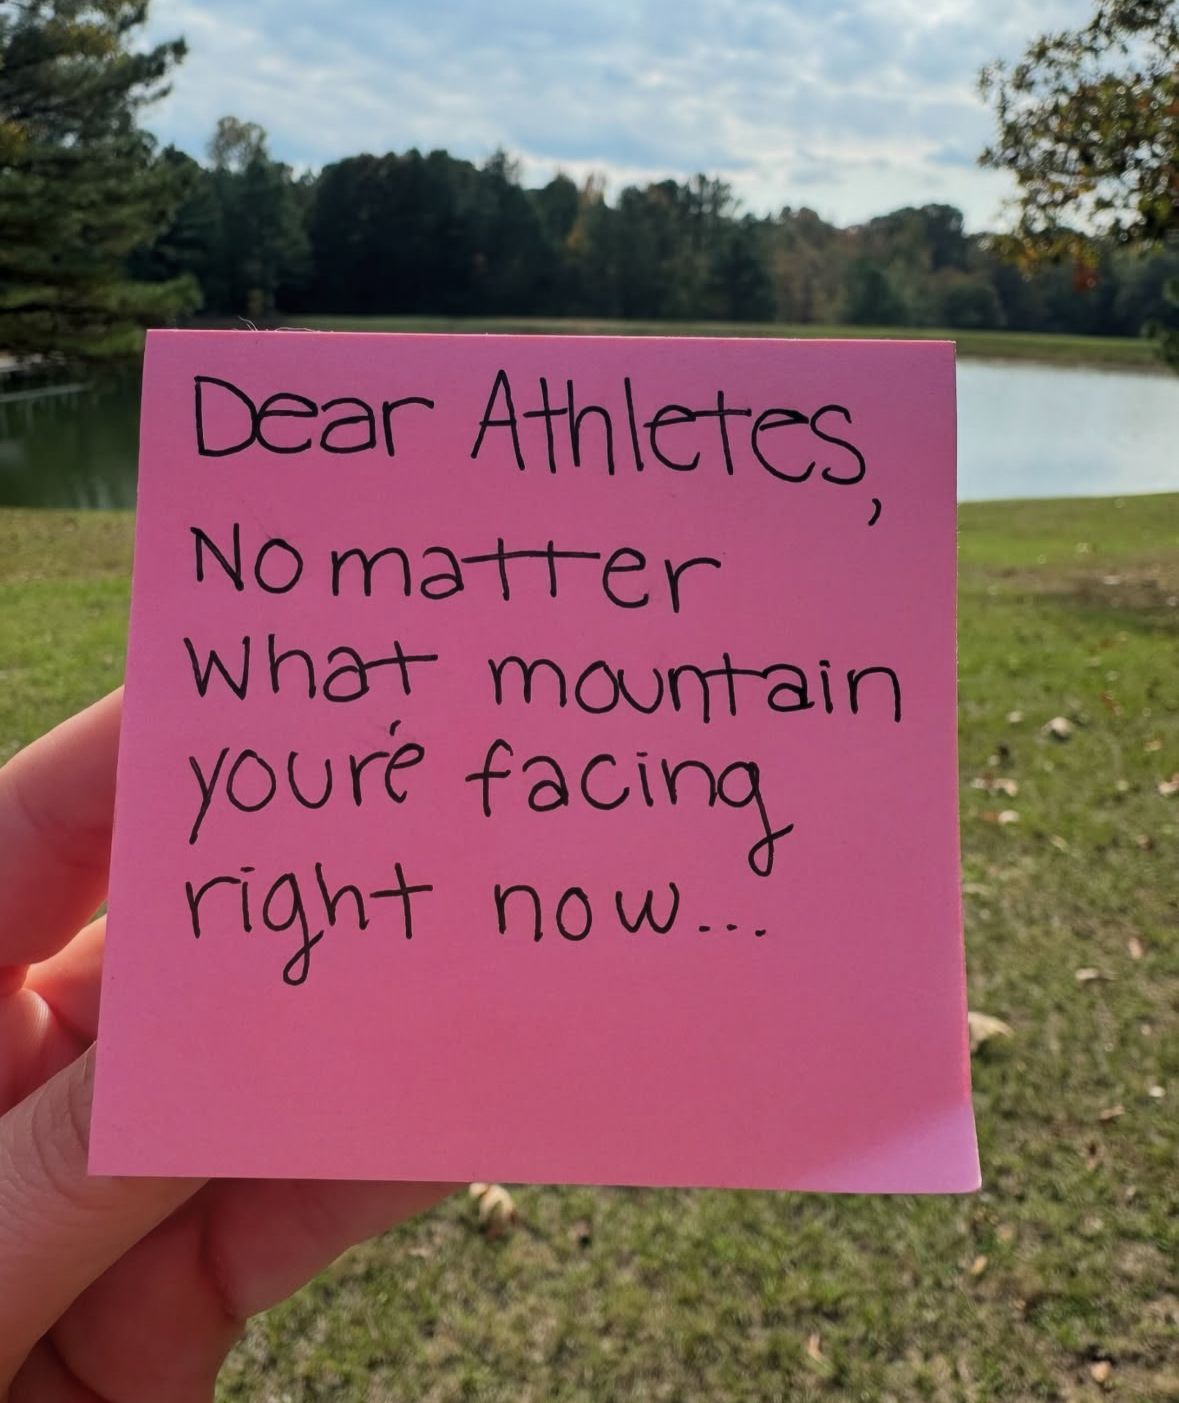 Dear Athletes,
No matter
What mountain
you're facing
right now...